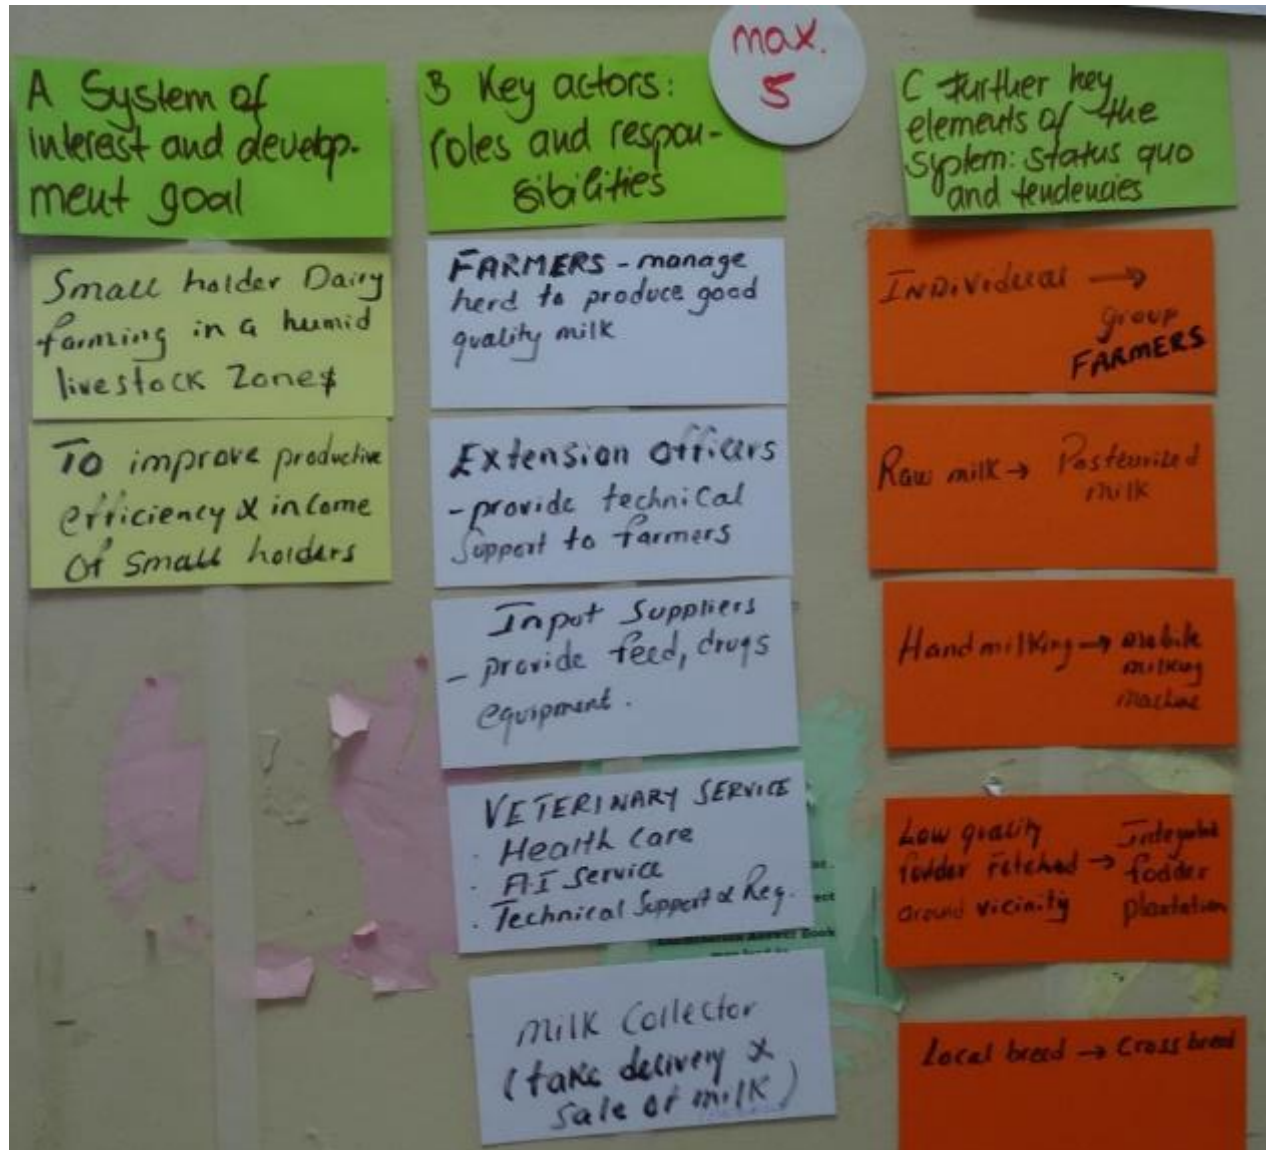 max.
5
A System of
interest and develop-
ment goal
Small holder Dairy
farming in a humid
livestock Zones
To improve productive
efficiency & income
Of small holders
B Key actors:
roles and respon-
sibilities
FARMERS - manage
herd to produce good
quality milk
Extension Officers
- provide technical
Support to farmers
Input Suppliers
- provide feed, drugs
equipment.
VETERINARY SERVICE
· Health Care
· A.I Service
· Technical Support & Reg.
Milk Collector
(take delivery &
Sale of milk)
C Further key
elements of the
System: status quo
and tendencies
Individual →
group
FARMERS
Raw milk → Pasteurized
milk
Hand milking → mobile
milking
machine
Low quality
fodder fetched →
around vicinity
fodder
plantation
Local breed → Cross breed
Examination Answer Book